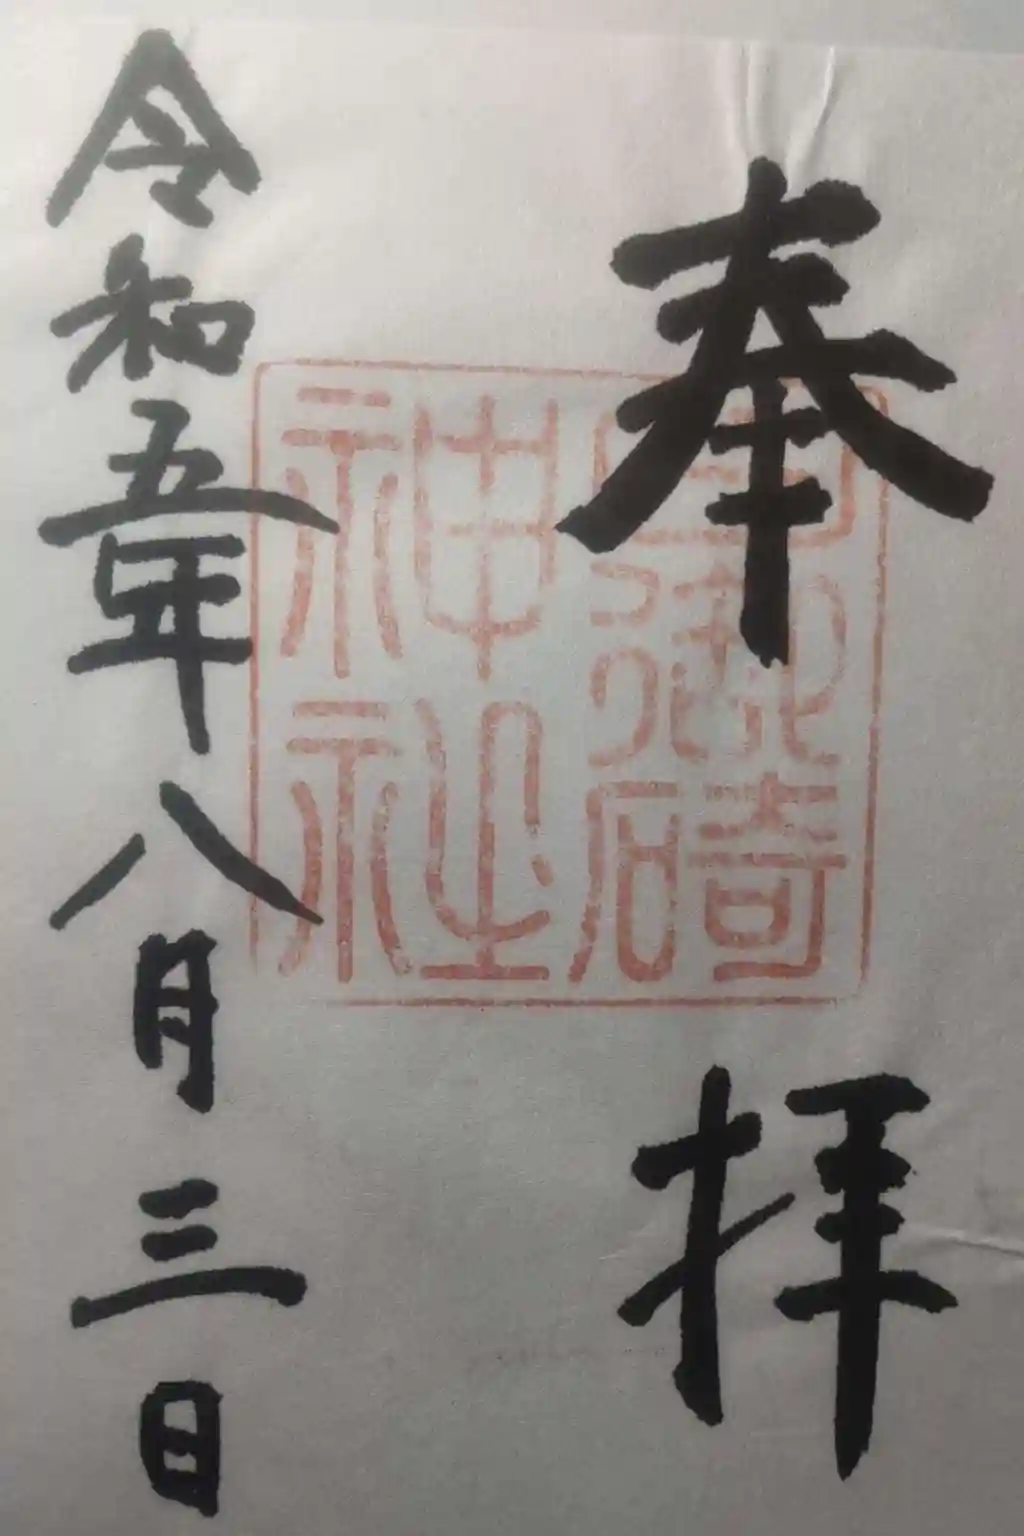 奉拝
御碕
神社
令和五年八月三日